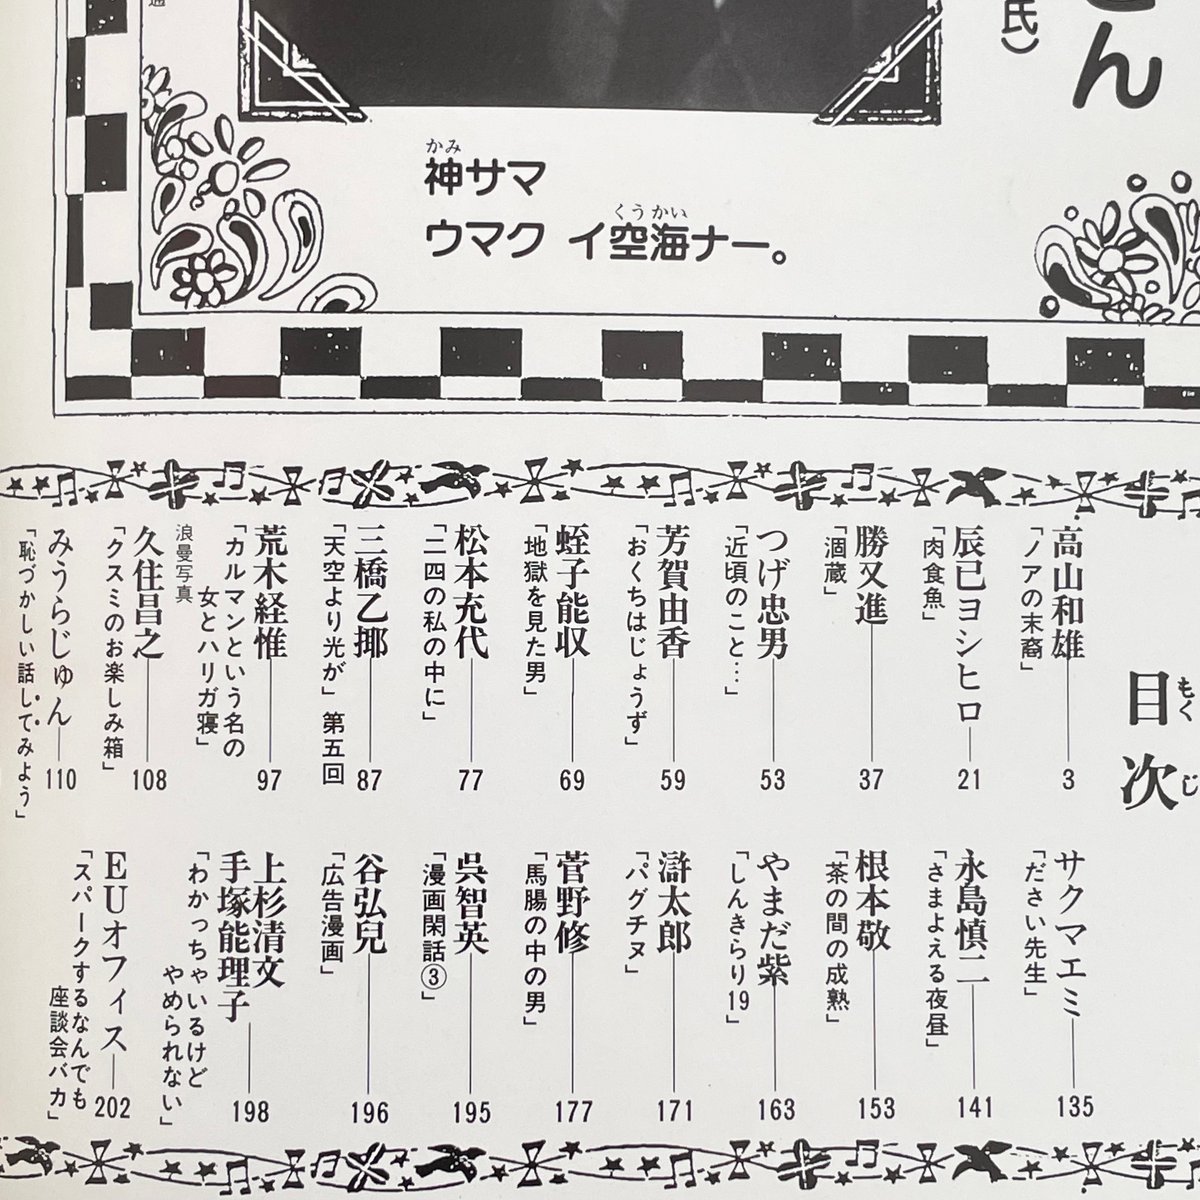 通
氏）
さん
かみ
神サマ
くうかい
ウマク イ空海ナー。
もくじ
目次
高山和雄
「ノアの末裔」
3
辰巳ヨシヒロ
「肉食魚」
21
勝又進
「涸蔵」
37
つげ忠男
「近頃のこと…」
53
芳賀由香
「おくちはじょうず」
59
蛭子能収
「地獄を見た男」
69
松本充代
「二四の私の中に」
77
三橋乙揶
「天空より光が」第五回
87
荒木経惟
「カルマンという名の
女とハリガ寝」
浪曼写真
97
久住昌之
「クスミのお楽しみ箱」
108
みうらじゅん
「恥づかしい話してみよう」
110
サクマエミ
「ださい先生」
135
永島慎二
「さまよえる夜昼」
141
根本敬
「茶の間の成熟」
153
やまだ紫
「しんきらり19」
163
滸太郎
「パグチヌ」
171
菅野修
「馬腸の中の男」
177
呉智英
「漫画閑話③」
195
谷弘兒
「広告漫画」
196
上杉清文
手塚能理子
「わかっちゃいるけど
やめられない」
198
EUオフィス
「スパークするなんでも
座談会バカ」
202